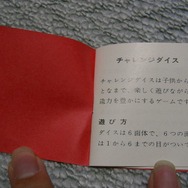 チャレンジダイス
チャレンジダイスは子供から
となまで、楽しく遊びながら
造力を豊かにするゲームです
遊び方
ダイスは6面体で、6つの面
は1から6までの目がついて